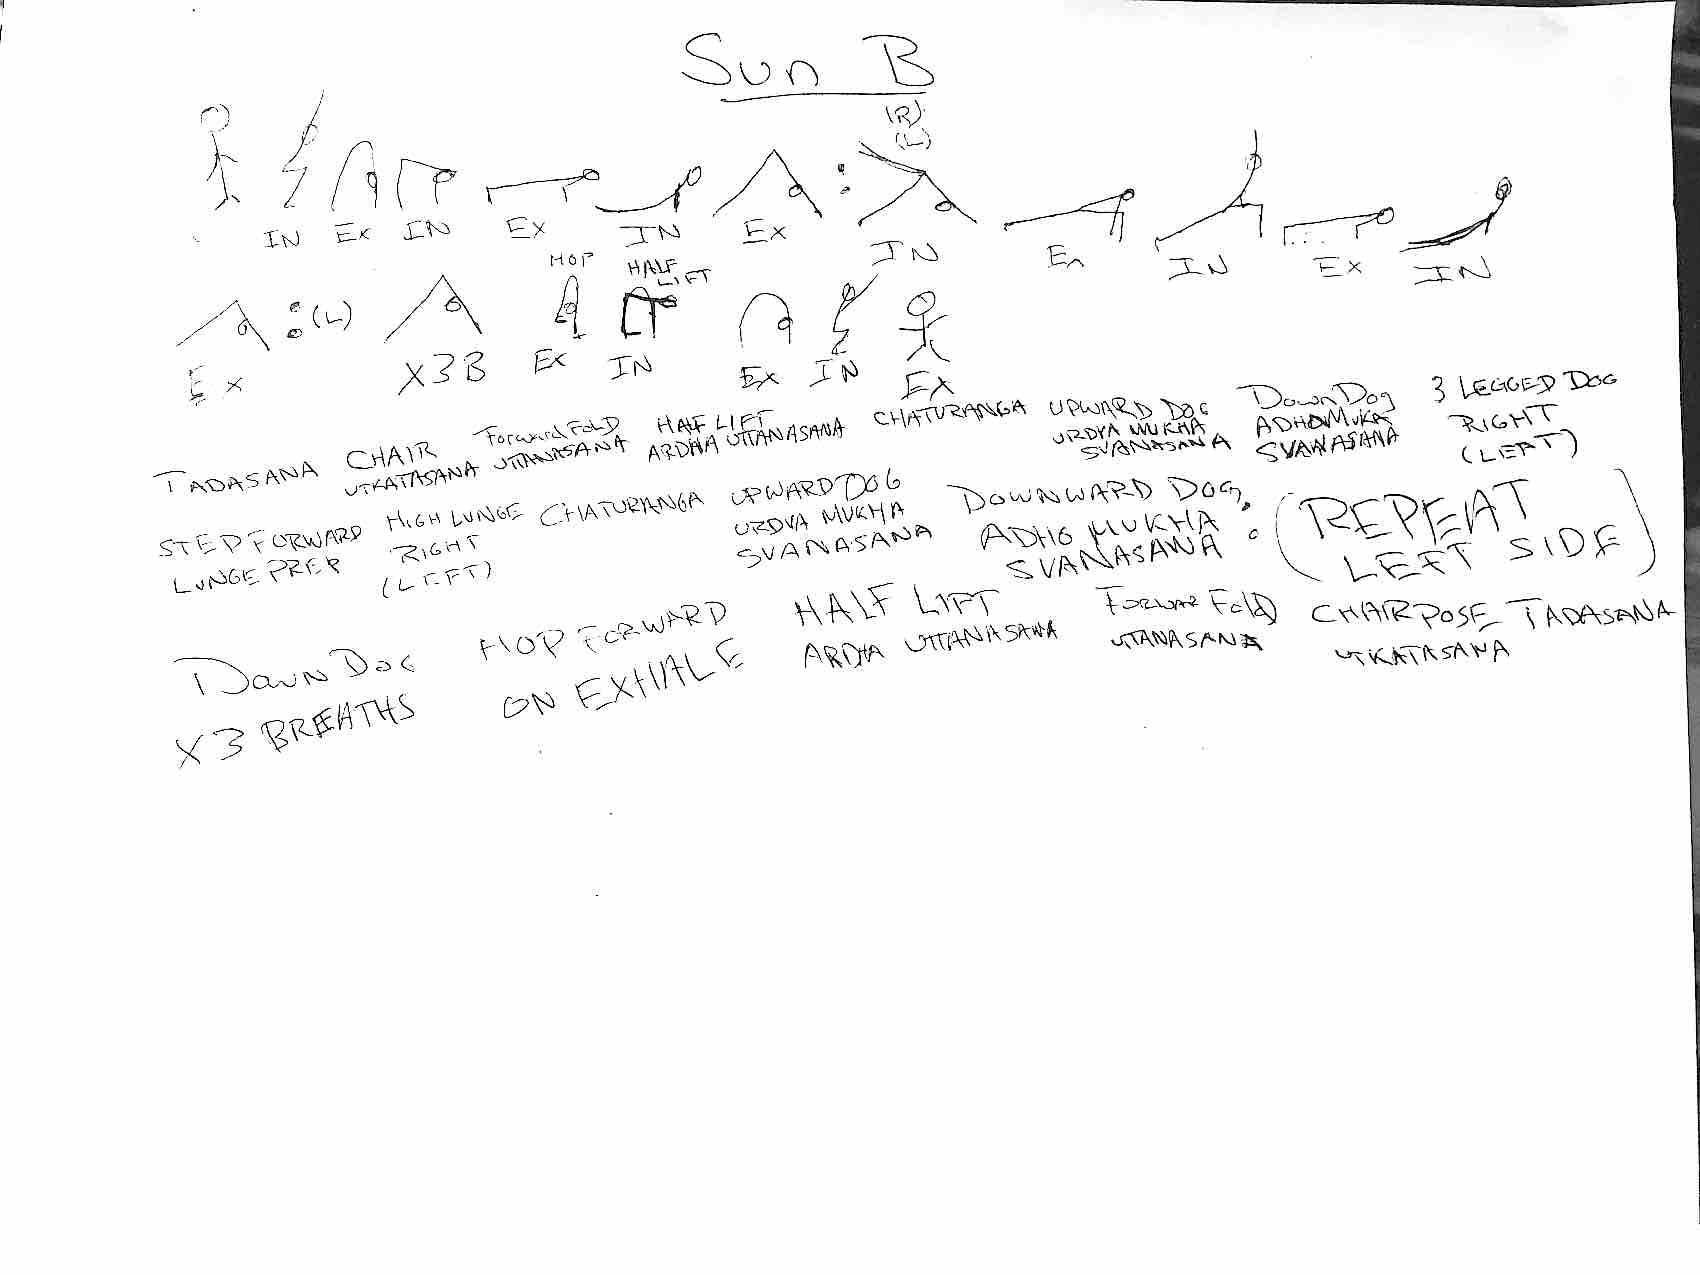 Sun B
(R)
(L)
IN Ex IN Ex IN Ex IN Ex IN Ex IN
HOP HALF LIFT
Ex :(L) X3B Ex IN Ex IN Ex
TADASANA CHAIR Forward FOLD HALF LIFT CHATURANGA UPWARD DOG Down Dog 3 LEGGED DOG
UTKATASANA UTTANASANA ARDHA UTTANASANA URDVA MUKHA ADHO MUKA RIGHT
SVANASANA SVANASANA (LEFT)
STEP FORWARD HIGH LUNGE CHATURANGA UPWARD DOG DOWNWARD DOG : (REPEAT
LUNGE PREP RIGHT URDVA MUKHA ADHO MUKHA LEFT SIDE)
(LEFT) SVANASANA SVANASANA
DOWN DOG HOP FORWARD HALF LIFT FORWAR Fold CHAIRPOSE TADASANA
X3 BREATHS ON EXHALE ARDHA UTTANASANA UTANASANA UTKATASANA